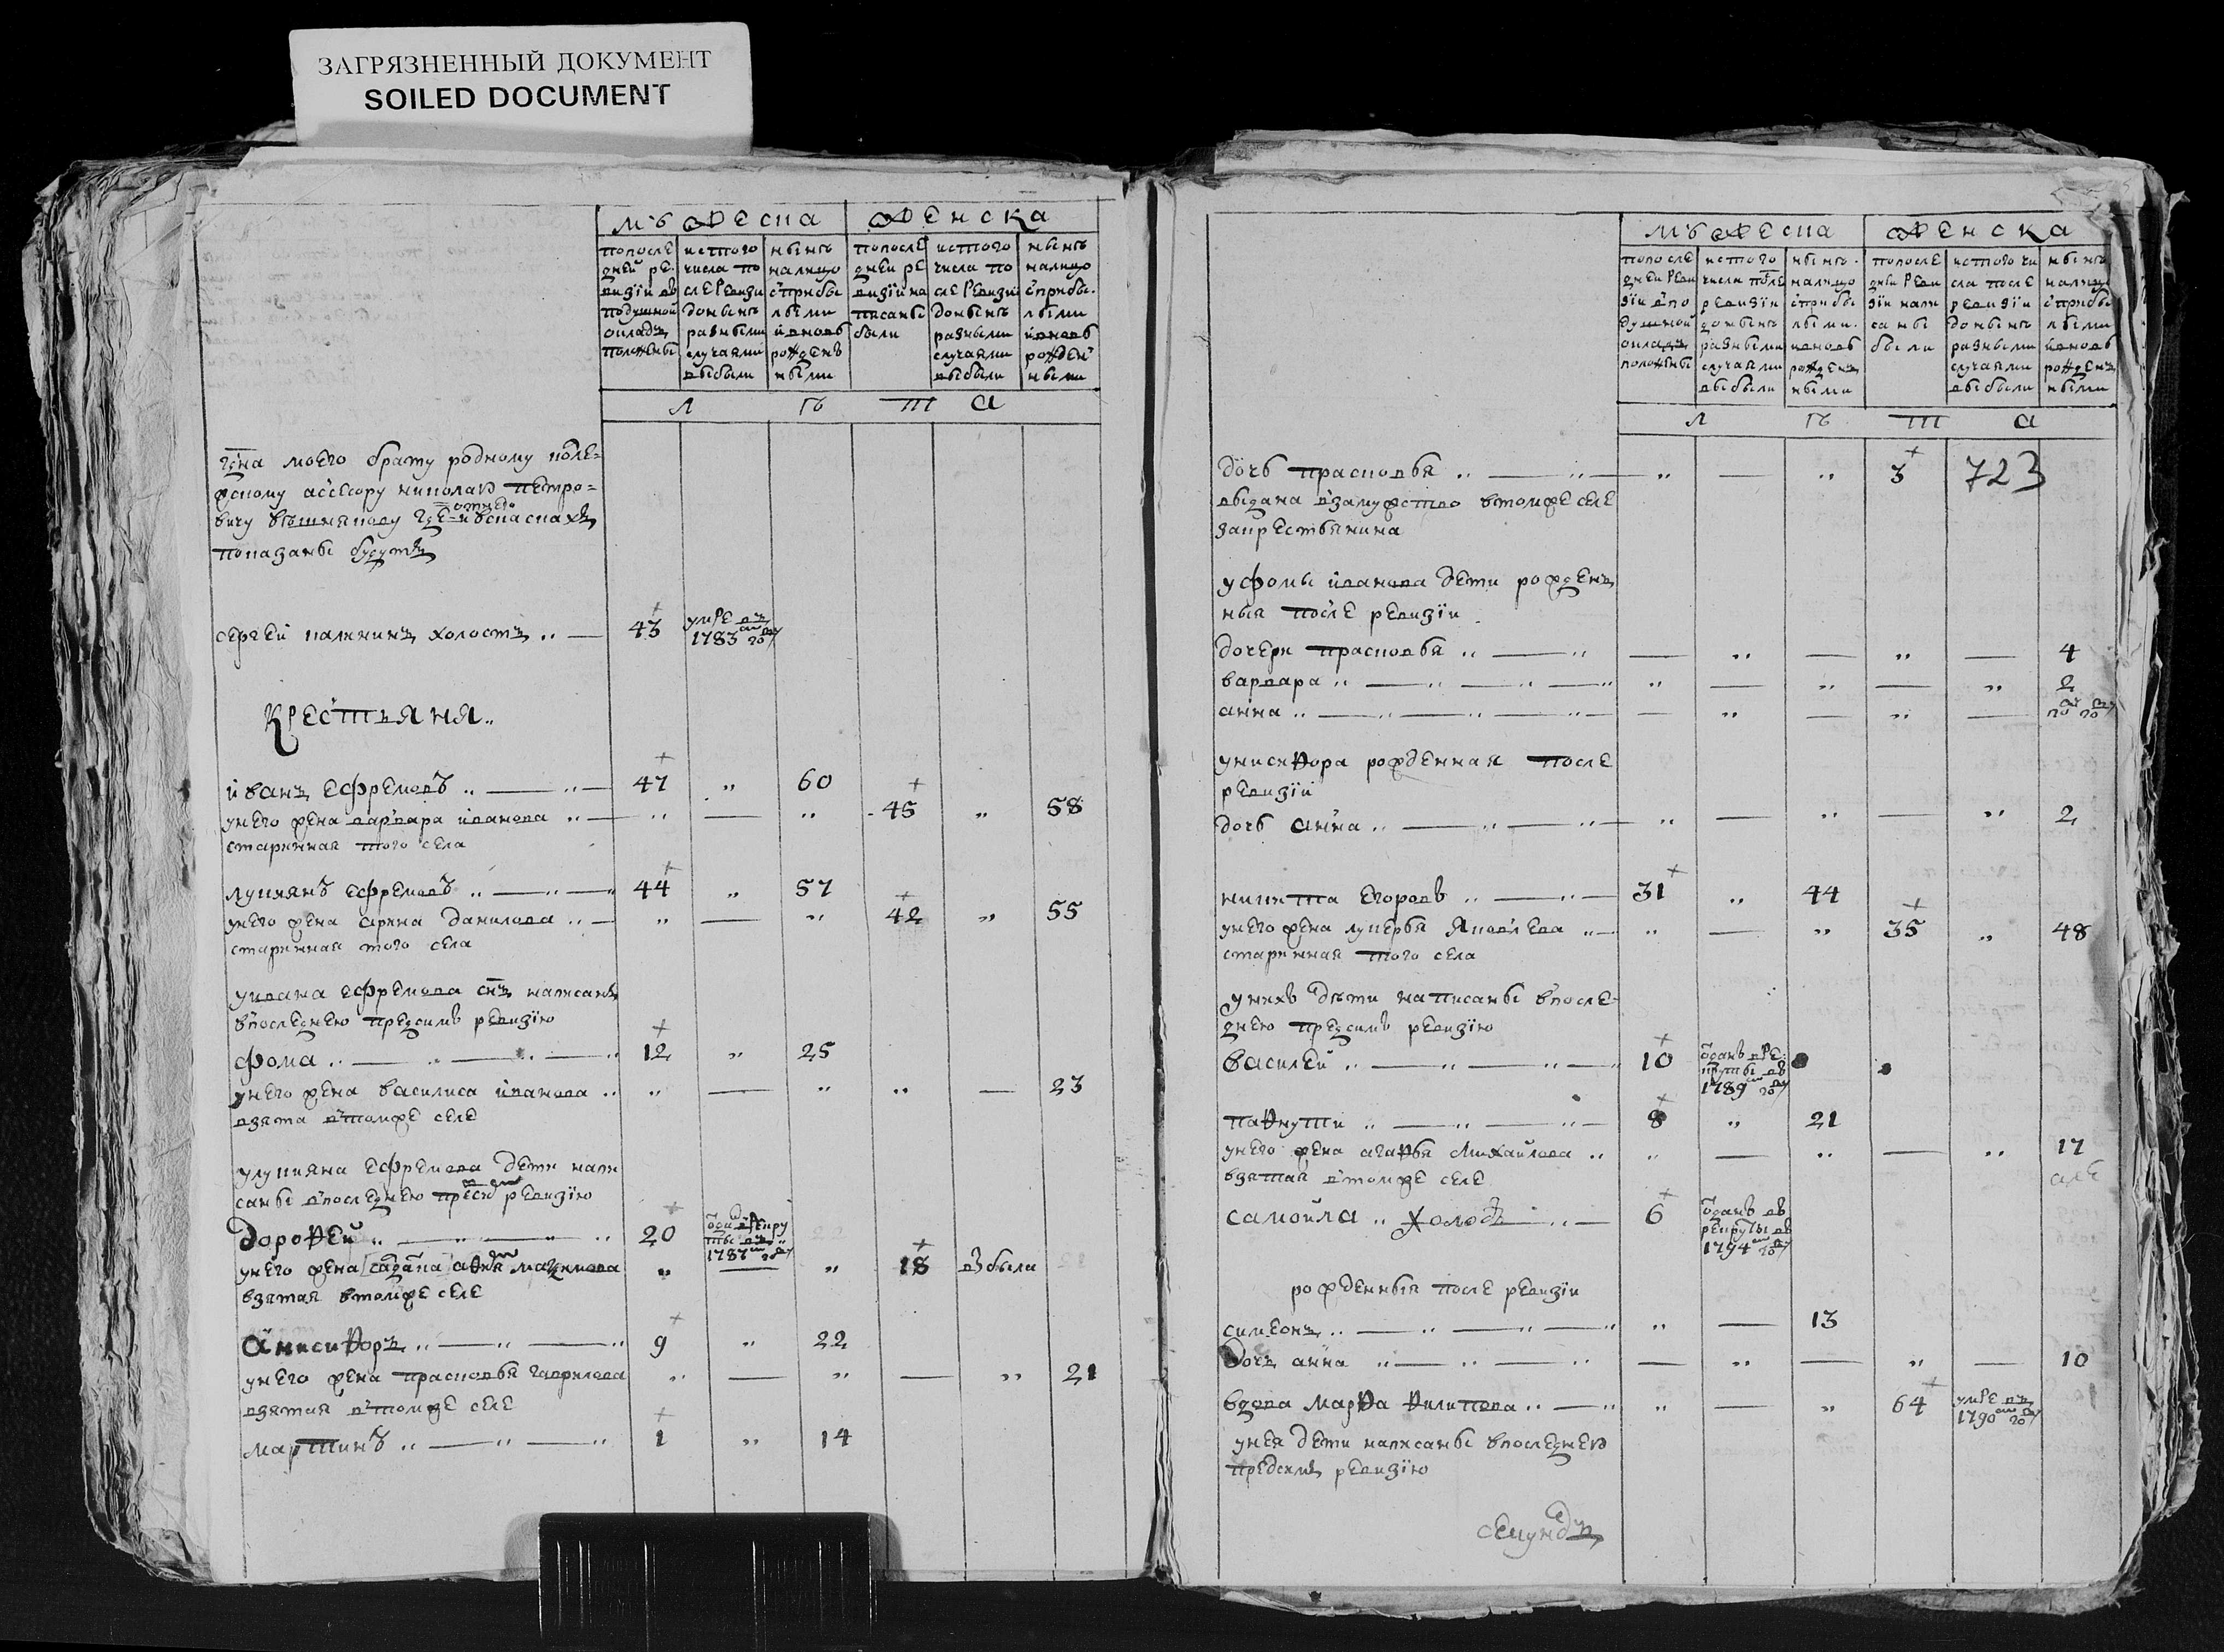 ЗАГРЯЗНЕННЫЙ ДОКУМЕНТ
SOILED DOCUMENT
мужеска женска
попосле дней ре визiи въ подушной окладъ положены
исътого числа по сле ревизи доныне разными случаями выбыли
нынѣ налицо сприбы лыми ивновь рожденъ ными
попосле дней ре визiи на писаны были
исътого числа по сле ревизи доныне разными случаями выбыли
нынѣ налицо сприбы лыми ивновь рожден ными
л ѣ т а
моего брату родному колле=
жскому асесору николаю петро=
вичу вышнякову где отнего
показаны будутъ
сергей калининъ холостъ 43 умре въ 1783 м году
крестьяня
иванъ ефремовъ 47 60
унего жена варвара иванова 45 58
старинная того села
лукиянъ ефремовъ 44 57
унего жена арина данилова 42 55
старинная того села
уивана ефремова снъ написанъ
впоследнею предсимъ ревизiю
фома 12 25
унего жена василиса иванова 23
взята втомже селе
улукияна ефремова дети напи
саны впоследнею предсим ревизiю
дорофей 20 одан врекру ты въ 1787 м году
унего жена афимья 18 выбыла
взятая втомже селе
аникифоръ 9 22
унего жена прасковья гаврилова 21
взятая втомже селе
мартинъ 1 14
мужеска женска
попосле дней реви зiи впо душной окладъ положены
исътого числа после ревизiи доныне разными случаями выбыли
нынѣ налицо сприбы лыми ивновь рожденъ ными
попосле дней реви зiи напи саны были
исътого чи сла после ревизiи доныне разными случаями выбыли
нынѣ налицо сприбы лыми ивновь рожденъ ными
л ѣ т а
дочь прасковья 3 723
выдана взамужство втомже селе
закрестьянина
уфомы иванова дети рожден
ныя после ревизiи
дочери прасковья 4
варвара 2
анна
уникифора рожденная после
ревизiи
дочь анна 2
никита егоровъ 31 44
унего жена лукерья яковлева 35 48
старинная того села
унихъ дѣти написаны впосле=
днею предсимъ ревизiю
василей 10 оданъ вре круты въ 1789 м году
пафнути 8 21
унего жена агафья михайлова 17
взятая втомже селе
самойла холостъ 6 оданъ въ рекруты въ 1794 м году
рожденныя после ревизiи
симеонъ 13
дочь анна 10
вдова марфа филипова 64 умре въ 1790 м году
унея дети написаны впоследнею
предсимъ ревизiю
секундъ